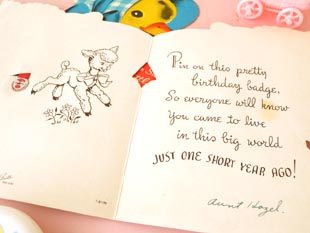 Pin on this pretty
birthday badge,
So everyone will know
You came to live
in this big world
JUST ONE SHORT YEAR AGO!
Aunt Hazel.